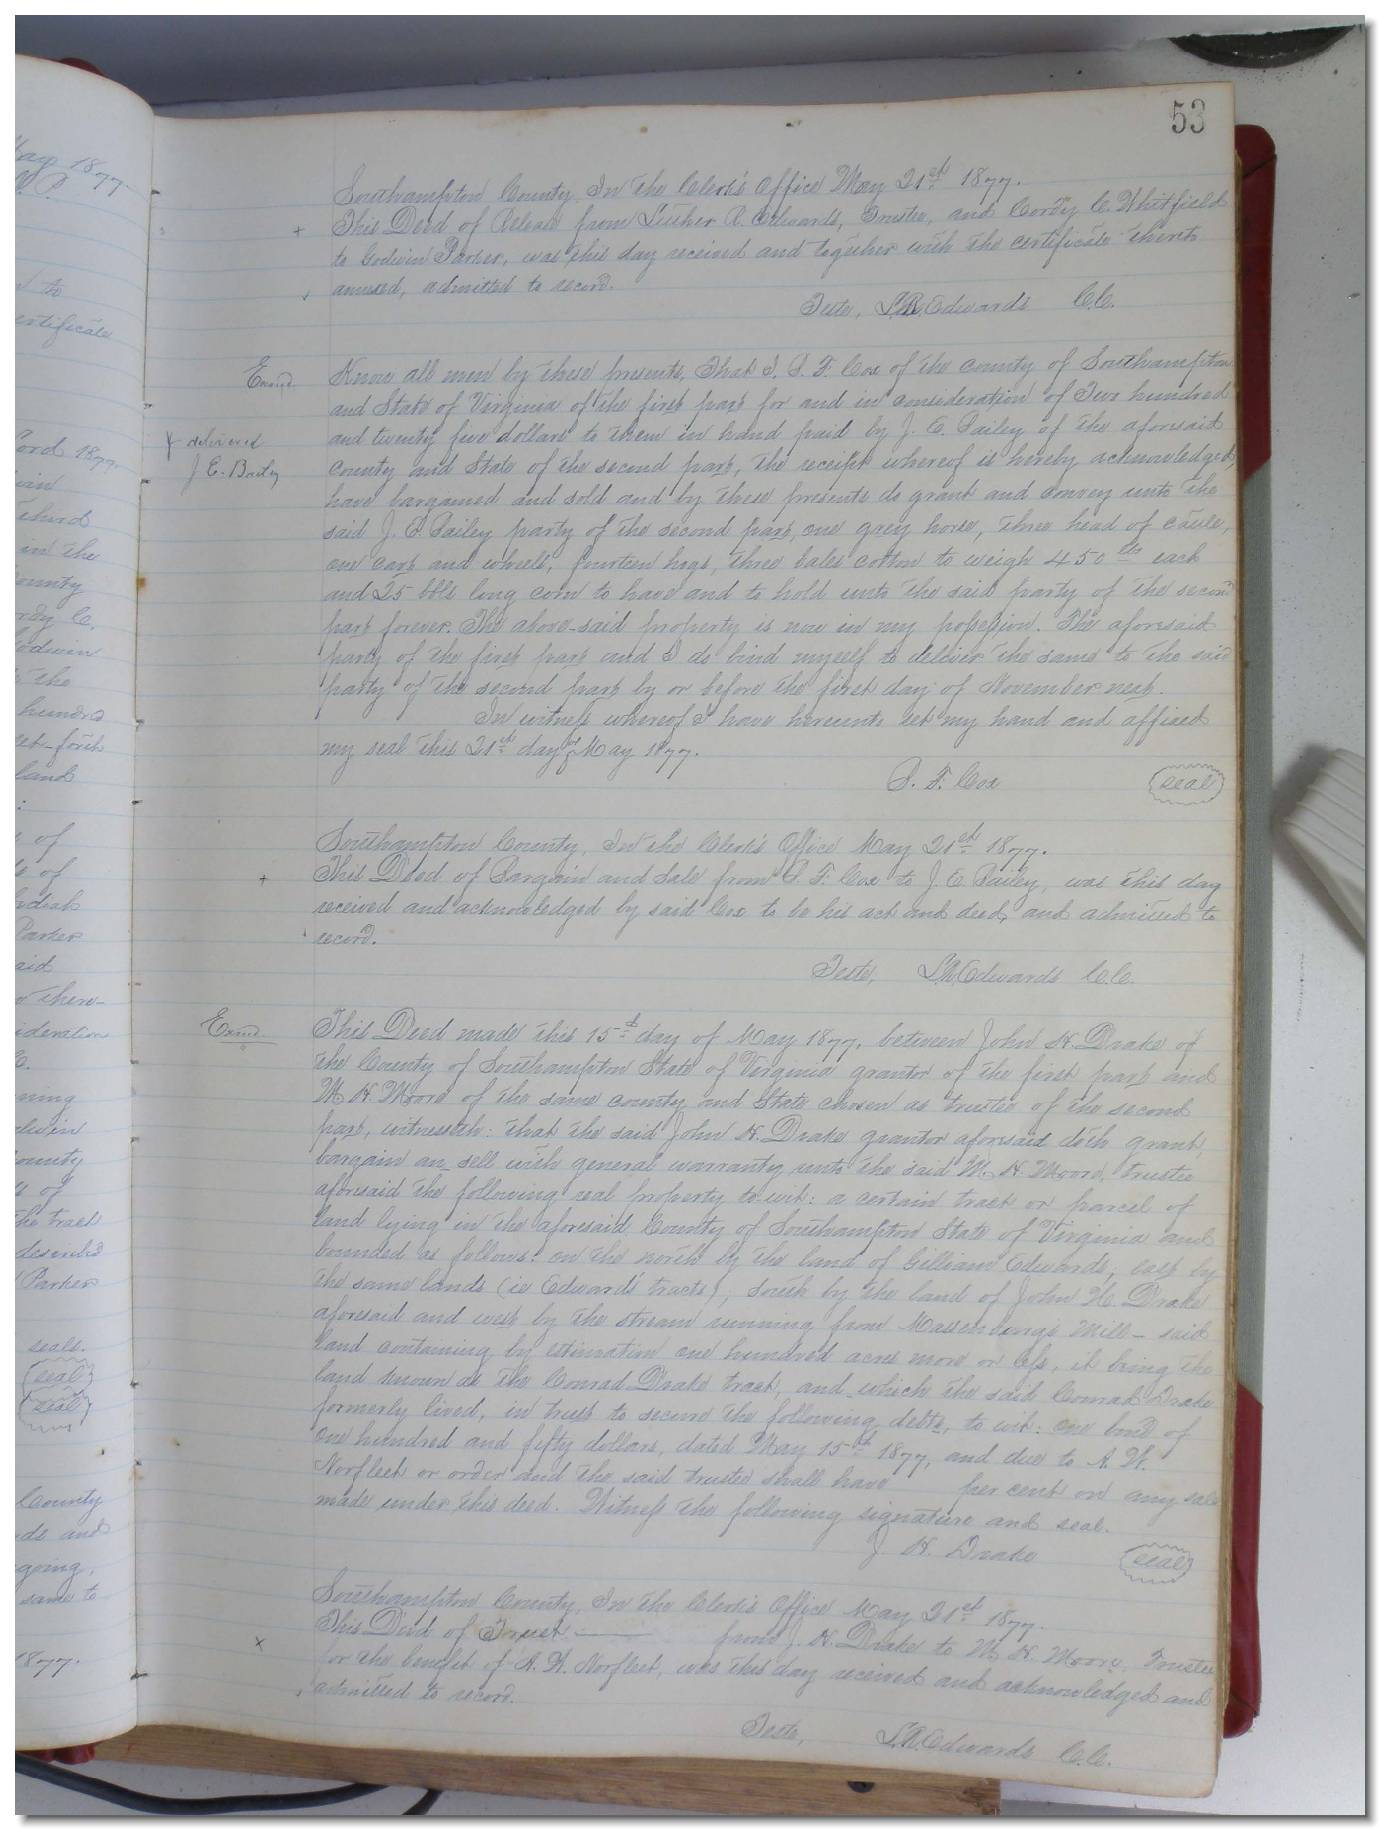 53
Southampton County, In the Clerk's Office May 21st 1877.
This Deed of Release from Luther R. Edwards, Trustee, and Cordy C. Whitfield
to Godwin Parker, was this day received and together with the certificate thereto
annexed, admitted to record.
Teste, L.R. Edwards C.C.
Exmd.
Know all men by these presents, That I, P. F. Cox of the county of Southampton
and State of Virginia of the first part for and in consideration of Two hundred
and twenty five dollars to them in hand paid by J. E. Bailey of the aforesaid
delivered
J. E. Bailey
county and State of the second part, the receipt whereof is hereby acknowledged,
have bargained and sold and by these presents do grant and convey unto the
said J. E. Bailey party of the second part, one grey horse, three head of cattle,
one cart and wheels, fourteen hogs, three bales cotton to weigh 450 lbs each
and 25 bbls long corn to have and to hold unto the said party of the second
part forever. The above-said property is now in my possession. The aforesaid
party of the first part and I do bind myself to deliver the same to the said
party of the second part by or before the first day of November next.
In witness whereof I have hereunto set my hand and affixed
my seal this 21st day of May 1877.
P. F. Cox seal
Southampton County, In the Clerk's Office May 21st 1877.
This Deed of Bargain and Sale from P. F. Cox to J. E. Bailey, was this day
received and acknowledged by said Cox to be his act and deed, and admitted to
record.
Teste, L.R. Edwards C.C.
Exmd.
This Deed made this 15th day of May 1877, between John H. Drake of
the County of Southampton State of Virginia grantor of the first part and
W. H. Moore of the same county and State chosen as trustee of the second
part, witnesseth: that the said John H. Drake grantor aforesaid doth grant,
bargain an sell with general warranty unto the said W. H. Moore, trustee
aforesaid the following real property to-wit: a certain tract or parcel of
land lying in the aforesaid County of Southampton State of Virginia and
bounded as follows: on the north by the land of Gilliam Edwards, east by
the same lands (ie Edwards' tracts), south by the land of John H. Drake
aforesaid and west by the stream running from Massenburg's Mill - said
land containing by estimation one hundred acres more or less, it being the
land known as the Conrad Drake tract, and which the said Conrad Drake
formerly lived, in trust to secure the following debts, to wit: one bond of
one hundred and fifty dollars, dated May 15th 1877, and due to A. W.
Norfleet or order and the said trustee shall have per cent on any sale
made under this deed. Witness the following signature and seal.
J. H. Drake seal
Southampton County, In the Clerk's Office May 21st 1877.
This Deed of Trust from J. H. Drake to W. H. Moore, Trustee
for the benefit of A. W. Norfleet, was this day received and acknowledged and
admitted to record.
Teste, L.R. Edwards C.C.